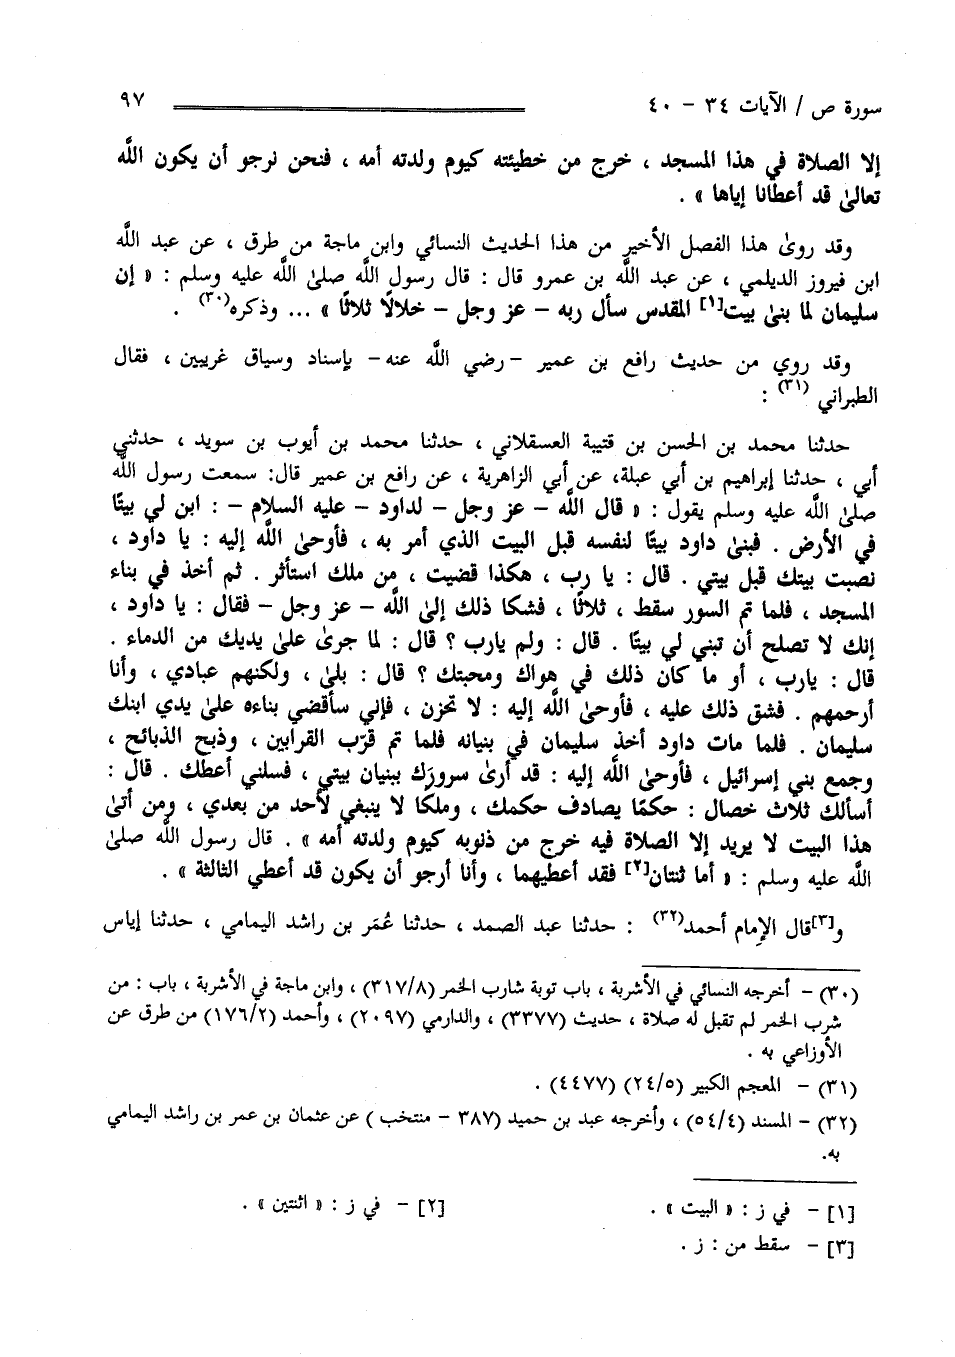 سورة ص / الآيات ٣٤ - ٤٠ ٩٧
إلا الصلاة في هذا المسجد ، خرج من خطيئته كيوم ولدته أمه ، فنحن نرجو أن يكون الله
تعالىٰ قد أعطانا إياها » .
وقد روىٰ هذا الفصل الأخير من هذا الحديث النسائي وابن ماجة من طرق ، عن عبد الله
ابن فيروز الديلمي ، عن عبد الله بن عمرو قال : قال رسول الله صلىٰ الله عليه وسلم : « إن
سليمان لما بنىٰ بيت[١] المقدس سأل ربه - عز وجل - خلالًا ثلاثًا » ... وذكره(٣٠) .
وقد روي من حديث رافع بن عمير -رضي الله عنه- بإسناد وسياق غريبين ، فقال
الطبراني (٣١) :
حدثنا محمد بن الحسن بن قتيبة العسقلاني ، حدثنا محمد بن أيوب بن سويد ، حدثني
أبي ، حدثنا إبراهيم بن أبي عبلة، عن أبي الزاهرية ، عن رافع بن عمير قال: سمعت رسول الله
صلىٰ الله عليه وسلم يقول : « قال الله - عز وجل - لداود - عليه السلام - : ابن لي بيتًا
في الأرض . فبنىٰ داود بيتًا لنفسه قبل البيت الذي أمر به ، فأوحىٰ الله إليه : يا داود ،
نصبت بيتك قبل بيتي . قال : يا رب ، هكذا قضيت ، من ملك استأثر . ثم أخذ في بناء
المسجد ، فلما تم السور سقط ، ثلاثًا ، فشكا ذلك إلىٰ الله - عز وجل - فقال : يا داود ،
إنك لا تصلح أن تبني لي بيتًا . قال : ولم يارب ؟ قال : لما جرىٰ علىٰ يديك من الدماء .
قال : يارب ، أو ما كان ذلك في هواك ومحبتك ؟ قال : بلىٰ ، ولكنهم عبادي ، وأنا
أرحمهم . فشق ذلك عليه ، فأوحىٰ الله إليه : لا تحزن ، فإني سأقضي بناءه علىٰ يدي ابنك
سليمان . فلما مات داود أخذ سليمان في بنيانه فلما تم قرّب القرابين ، وذبح الذبائح ،
وجمع بني إسرائيل ، فأوحىٰ الله إليه : قد أرىٰ سرورَك ببنيان بيتي ، فسلني أعطك . قال :
أسألك ثلاث خصال : حكمًا يصادف حكمك ، وملكًا لا ينبغي لأحد من بعدي ، ومن أتىٰ
هذا البيت لا يريد إلا الصلاة فيه خرج من ذنوبه كيوم ولدته أمه » . قال رسول الله صلىٰ
الله عليه وسلم : « أما ثنتان[٢] فقد أعطيهما ، وأنا أرجو أن يكون قد أعطي الثالثة » .
و[٣]قال الإمام أحمد(٣٢) : حدثنا عبد الصمد ، حدثنا عُمَر بن راشد اليمامي ، حدثنا إياس
(٣٠) - أخرجه النسائي في الأشربة ، باب توبة شارب الخمر (٣١٧/٨) ، وابن ماجة في الأشربة ، باب : من
شرب الخمر لم تقبل له صلاة ، حديث (٣٣٧٧) ، والدارمي (٢٠٩٧) ، وأحمد (١٧٦/٢) من طرق عن
الأوزاعي به .
(٣١) - المعجم الكبير (٢٤/٥) (٤٤٧٧) .
(٣٢) - المسند (٥٤/٤) ، وأخرجه عبد بن حميد (٣٨٧ - منتخب ) عن عثمان بن عمر بن راشد اليمامي
به.
[١] - في ز : « البيت » . [٢] - في ز : « اثنتين » .
[٣] - سقط من : ز .